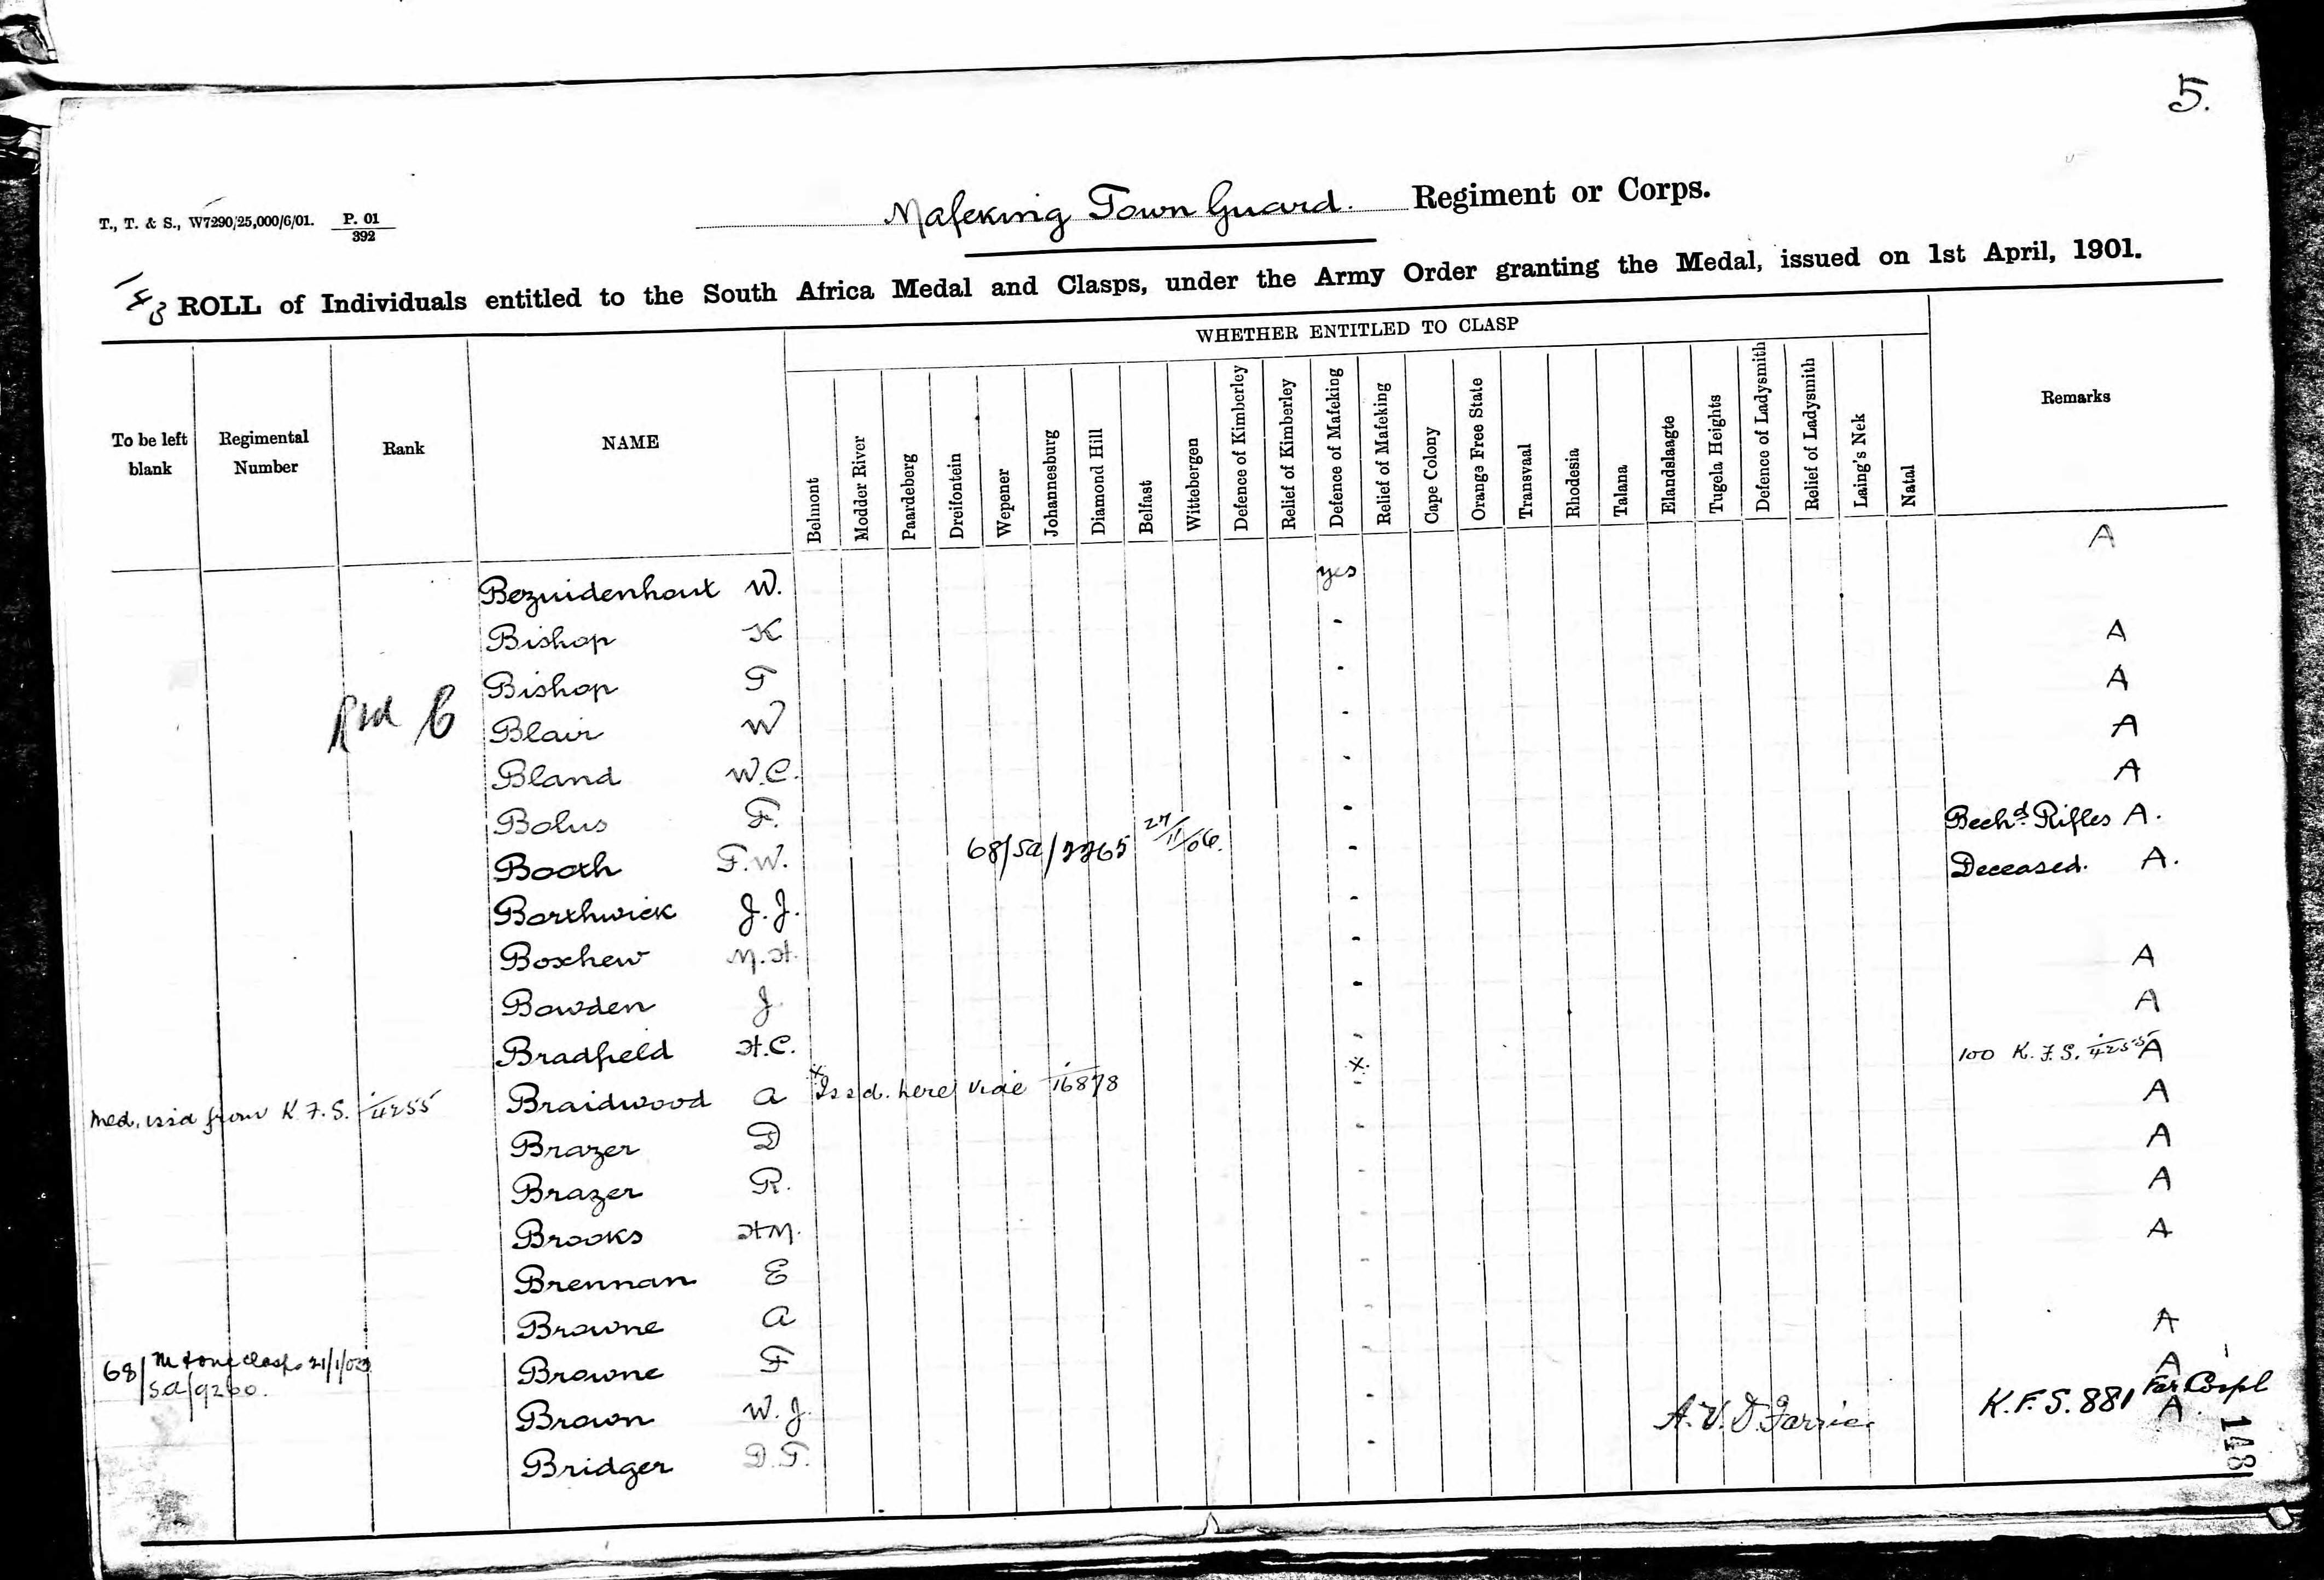 5.
T., T. & S., W7290/25,000/6/01. P. 01
392
Mafeking Town Guard. Regiment or Corps.
ROLL of Individuals entitled to the South Africa Medal and Clasps, under the Army Order granting the Medal, issued on 1st April, 1901.
WHETHER ENTITLED TO CLASP
To be left blank Regimental Number Rank NAME Belmont Modder River Paardeberg Dreifontein Wepener Johannesburg Diamond Hill Belfast Wittebergen Defence of Kimberley Relief of Kimberley Defence of Mafeking Relief of Mafeking Cape Colony Orange Free State Transvaal Rhodesia Talana Elandslaagte Tugela Heights Defence of Ladysmith Relief of Ladysmith Laing's Nek Natal Remarks
Bezuidenhout W. yes A
Bishop K - A
Bishop F - A
Blair W - A
Bland W.C. - A
Bolus F. - Bechd. Rifles A.
Booth F.W. 68/SA/ 27/11/06. - Deceased. A.
Borthwick J.J. -
Boxhew M.H. - A
Bowden J. - A
Bradfield H.C. - 100 K.F.S. 4255 A
med. issd from K.F.S. 4255 Braidwood A x Issd. here vide 16878 x - A
Brazer D - A
Brazer R. - A
Brooks H.M. - A
Brennan E -
Browne A - A
68/SA/9260. M & one clasp 21/1/ Browne F - A
Brown W.J. - A.V.D. Farrier K.F.S. 881 Far Corpl A
Bridger D.F. -
148